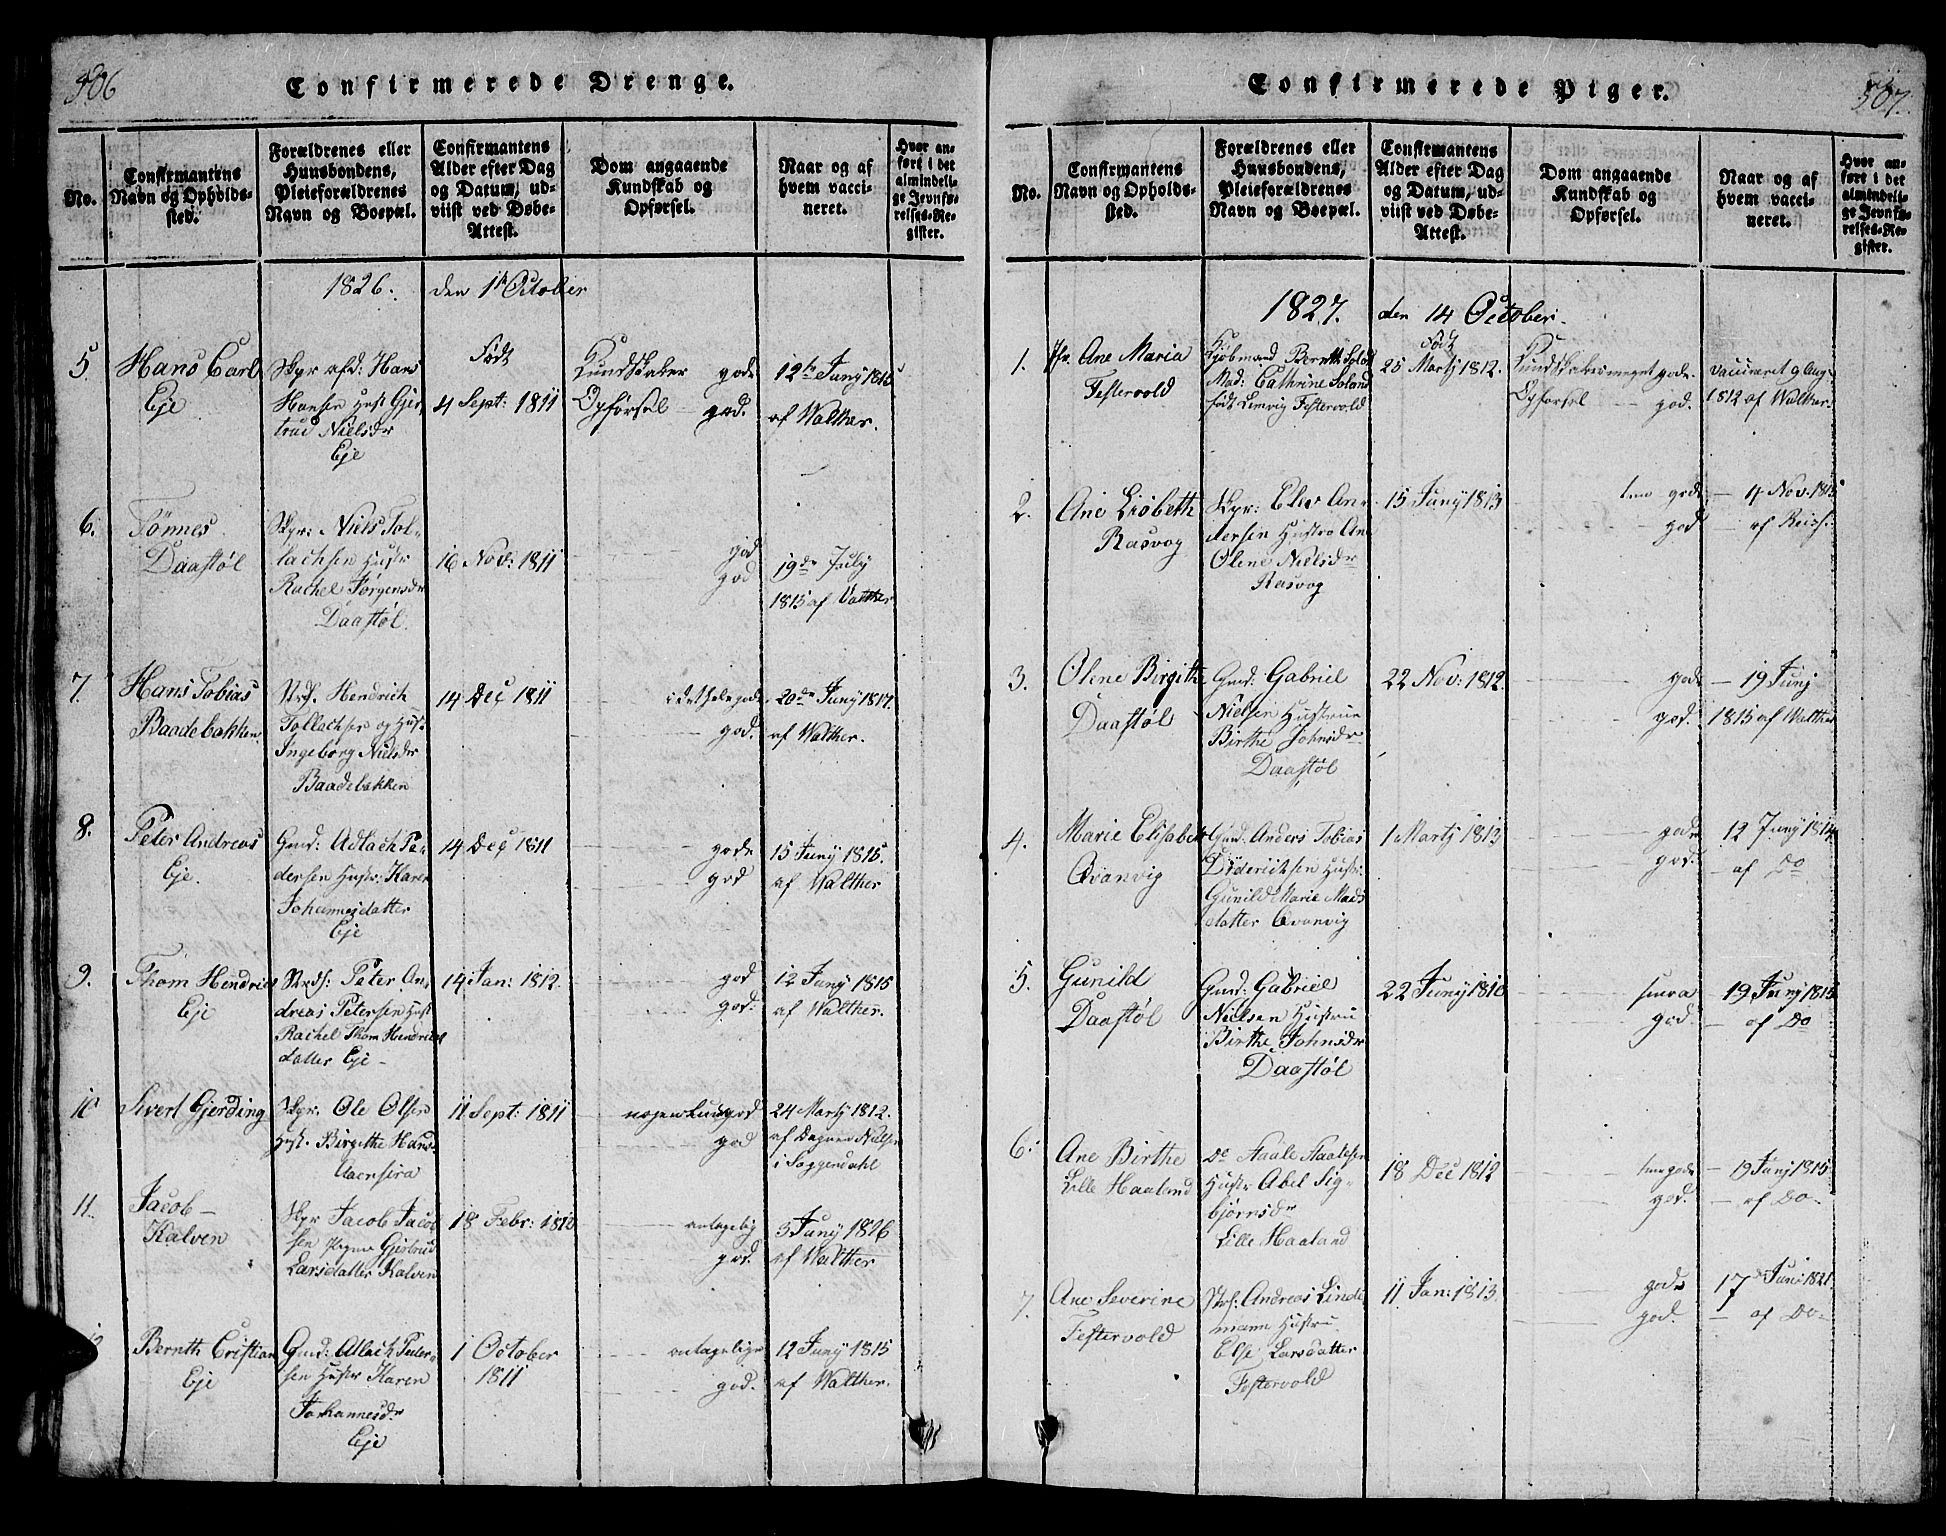 506
Confirmerede Drenge.
No.
Confirmantens
Navn og Opholds-
sted.
Forældrenes eller
Huusbondens,
Pleieforældrenes
Navn og Boepæl.
Confirmantens
Alder efter Dag
og Datum, ud-
viist ved Døbe-
Attest.
Dom angaaende
Kundskab og
Opførsel.
Naar og af
hvem vacci-
neret.
Hvor an-
ført i det
almindeli-
ge Jevnfø-
relses-Re-
gister.
1826. den 1 October
5
Hans Carl
Eje
Skpr afd: Hans
Hansen Hust Gjer
trud Nielsdr
Eje
Født
4 Sept: 1811
Kundskaber gode
Opførsel god.
12te Juny 1815
af Walther.
6.
Tönnes
Daastöl
Skpr: Niels Tol-
lachsen Hustr
Rachel Jørgensdr
Daastöl.
16 Nov: 1811
god
god
19de July
1815 af Walther
7.
Hans Tobias
Baadebakken
Strds. Hendrich
Tollachsen og Hust.
Ingeborg Nielsdr
Baadebakken
14 Dec 1811
gode
god.
20de Juny 1814.
af Walther.
8.
Peter Andreas
Eje.
Gmd: Adlach Pe-
dersen Hustr: Karen
Johannesdatter
Eje
14 Dec 1811
gode
god
15 Juny 1815.
af Walther
9.
Thom Hendrich
Eje
Strds: Peter An-
dreas Petersen Hust
Rachel Thom Hendrichs
datter Eje -
14 Jan: 1812.
god
god.
12 Juny 1815
af Walther.
10
Sivert Gjerding
Skpr. Ole Olsen
Hust. Birgithe Hans-
Aaensira
11 Sept: 1811
god
god
24 Martj 1812.
af Dagner Nielsen
i Soggendahl
11.
Jacob -
Kalven
Skpr Jacob Jacob
sen Gjertrud
Larsdatter Kalven
18 Febr: 1810
antagelig
god.
3 Juny 1816
af Walther
12
Bernth Cristian
Eje
Gmd: Allach Peter-
sen Hustr Karen
Johannesdr
Eje
1 October
1811
antagelige
god.
12 Juny 1815
af Walther.
507.
Confirmerede Piger.
No.
Confirmantens
Navn og Opholds-
sted.
Forældrenes eller
Huusbondens,
Pleieforældrenes
Navn og Boepæl.
Confirmantens
Alder efter Dag
og Datum, ud-
viist ved Døbe-
Attest.
Dom angaaende
Kundskab og
Opførsel.
Naar og af
hvem vacci-
neret.
Hvor an-
ført i det
almindeli-
ge Jevnfø-
relses-Re-
gister.
1827. den 14 October.
1.
Jfr. Ane Maria
Festervold
Kjøbmand Bernth Soland
Mad: Cathrine Soland
født Lemvig Festervold
Født
25 Martj 1812.
Kundskaber meget gode.
Opførsel - god.
Vaccineret 9 Aug.
1812 af Walther.
2.
Ane Lisbeth
Rasvog
Skpr: Elias An-
dersen Hustro Ane
Olene Nielsdr
Rasvog
15 Juny 1813
gode
god
- 4 Nov. 1815
af Reich.
3.
Olene Birgithe
Daastöl
Gmd: Gabriel
Nielsen Hustrue
Birthe Johnsdr
Daastöl
22 Nov: 1812.
gode
god.
- 19 Junj
1815 af Walther
4.
Marie Elisabeth
Qvanvig
Gmd: Anders Tobias
Diderichsen Hustr.
Gunild Marie Mads
datter Qvanvig
1 Martj 1813
gode
god.
12 Juny 1814
- af Do
5.
Gunild
Daastöl
Gmd: Gabriel
Nielsen Hustru
Birthe Johnsdr
Daastöl
22 Juny 1810
smaa
god.
19 Juny 1815
- af Do
6.
Ane Birthe
Lille Haaland
Do Aale Aadesen
Hustr Abel Sig-
bjørnsdr
Lille Haaland
18 Dec 1812
gode
god.
- 19 Junj 1815
- af Do.
7.
Ane Severine
Festervold
Strds: Andreas Linde
mann Hustru
Else Larsdatter
Festervold
11 Jan: 1813.
gode
god.
17 Juni 1821
- af Do-